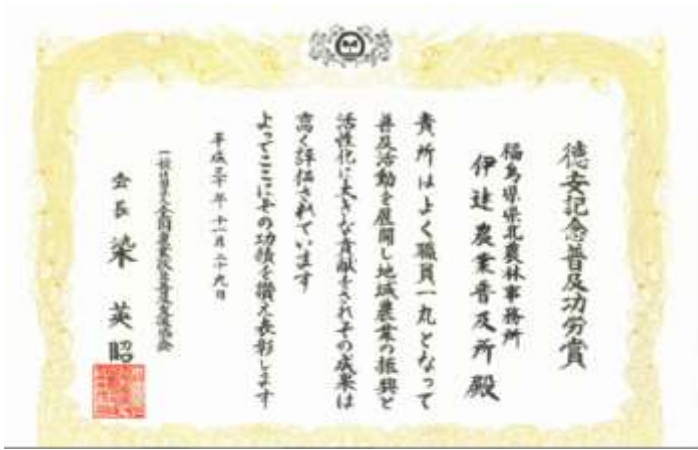 徳安記念普及功労賞
福島県県北農林事務所
伊達農業普及所殿
貴所はよく職員一丸となって
普及活動を展開し地域農業の振興と
活性化に大きな貢献をされその成果は
高く評価されています
よってここにその功績を讃え表彰します
平成三十年十一月二十九日
一般社団法人全国農業改良普及支援協会
会長 染 英昭